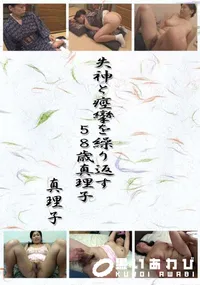 失神と痙攣を繰り返す
58歳真理子
真理子
黒いあわび
KUROI AWABI